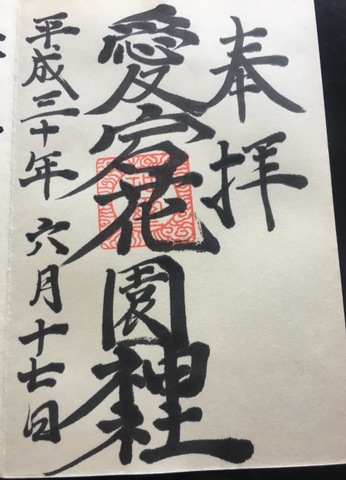 奉拝
愛宕花園社
平成三十年六月十七日